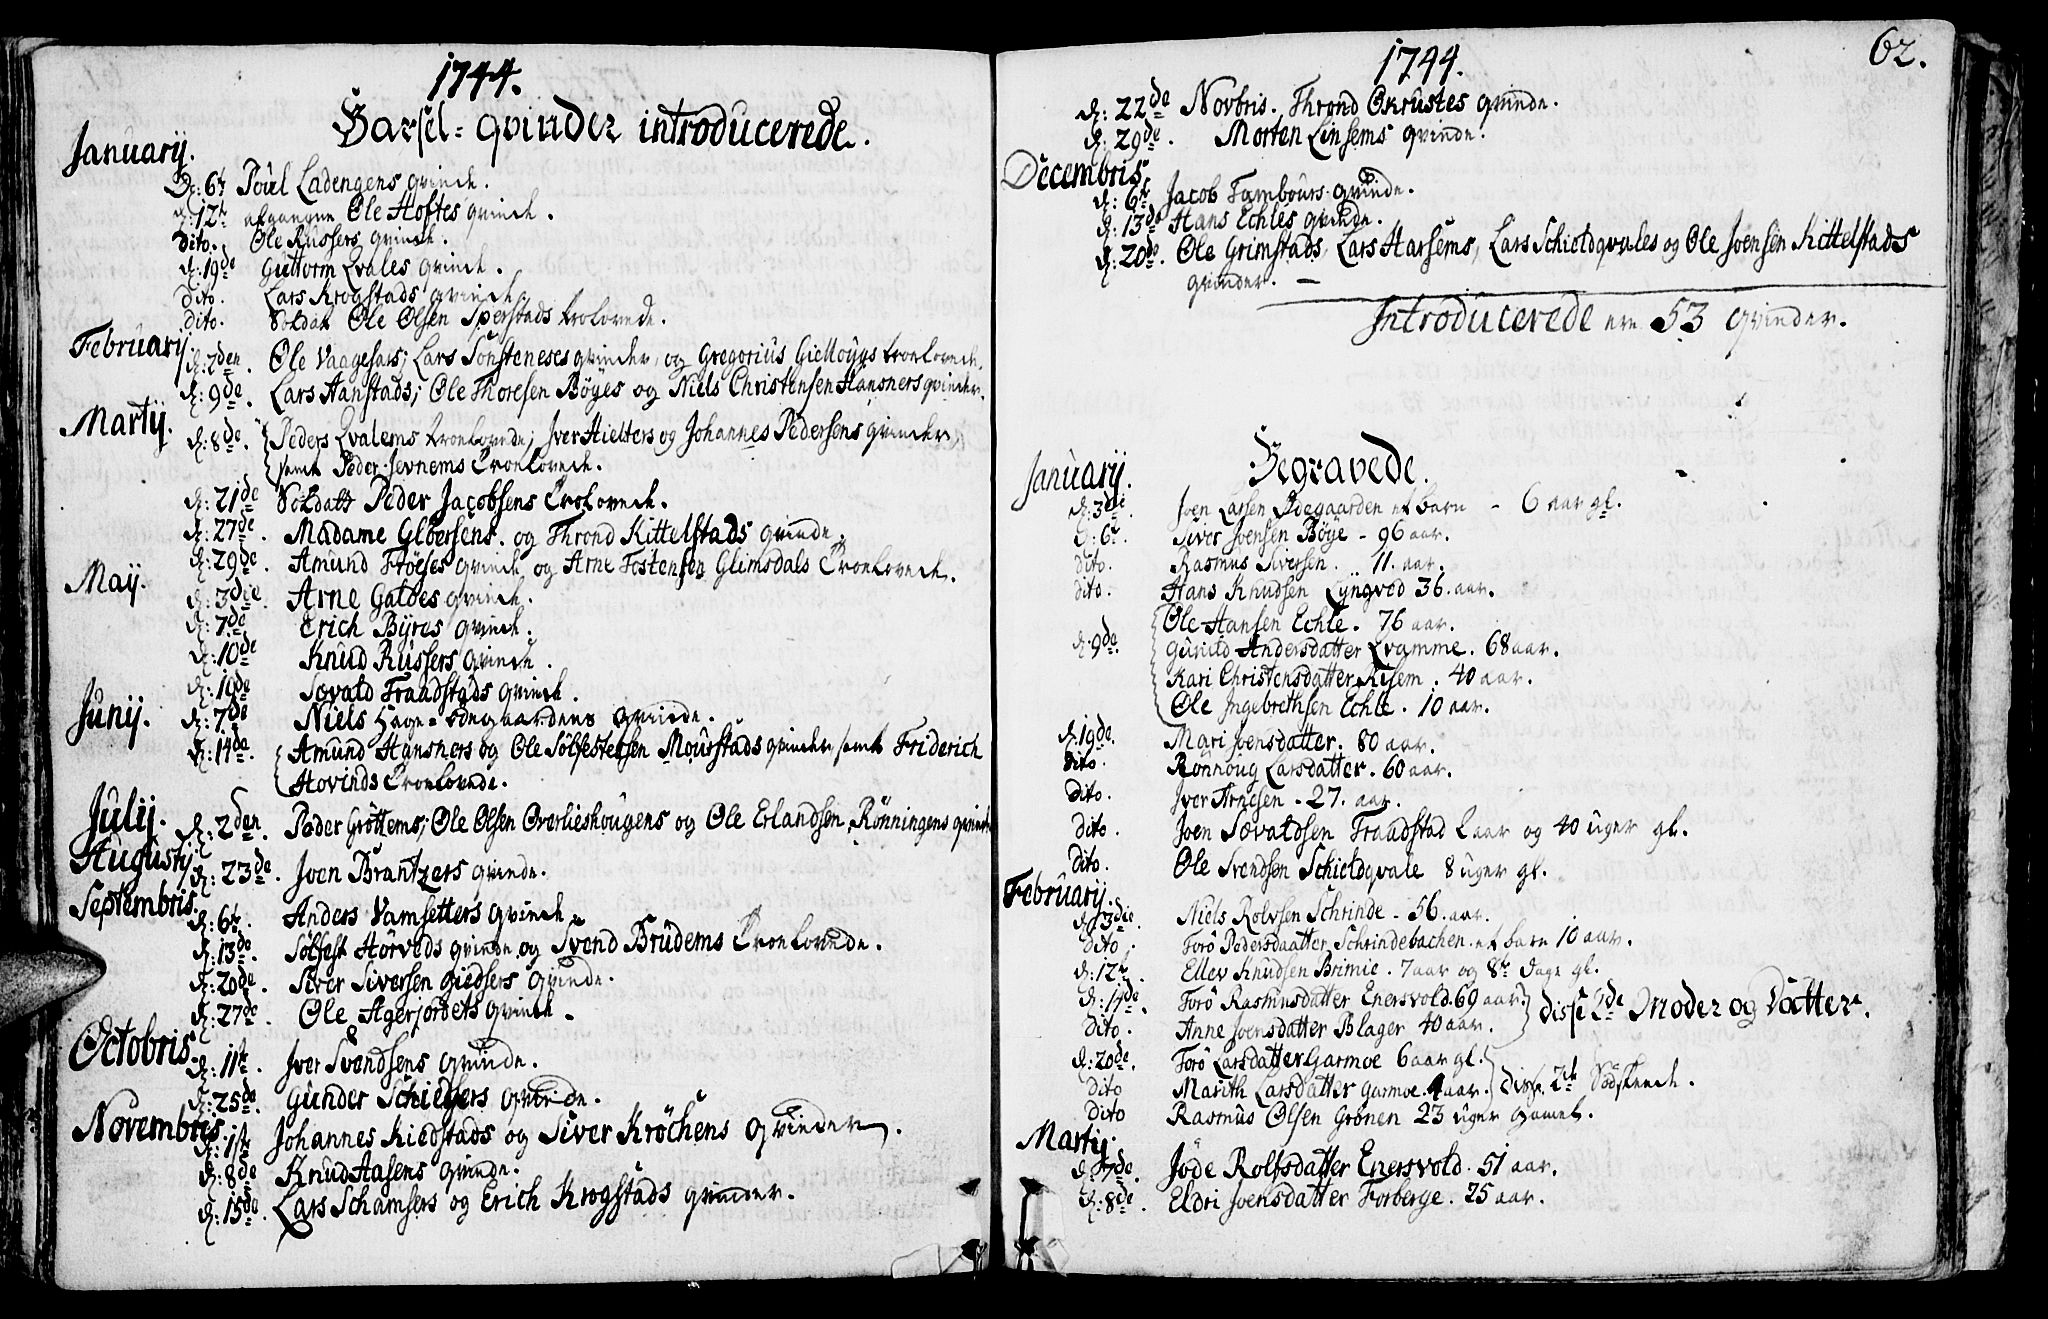 1744.
Barsel=qvinder introducerede.
Januarij.
D: 6t Poul Ladengens qvinde.
d: 12t afgangne Ole Hoftes qvinde.
Dito. Ole Russers qvinde.
d: 19de Guttorm Qvales qvinde.
Dito. Lars Krogstads qvinde.
Dito. Soldat Ole Olsen Sperstads trolovede.
Februarij
d: 2den. Ole Vaagesars, Lars Sonsteneses qvinder, og Gregorius troelovede.
d: 9de. Lars Hanstads, Ole Thoresen Böyes og Niels Christensen Hansners qvinder.
Martij.
d: 8de. Peders Qvalems troelovede, Iver Hielters og Johannes Pedersens qvinder,
samt Peder Jevnems Troelovede.
d: 21de Soldatt Peder Jacobsens Trolovede.
d: 27de. Madame Gloersens. og Thrond Kittelstads qvinde.
d: 29de. Amund Fröeses qvinde og Arne Tostensen Glimsdals Troelovede.
Maij.
d: 3die. Arne Galdes qvinde.
d: 7de Erich Byres qvinde.
d: 10de Knud Russers qvinde.
d: 19de Sævald Fraadstads qvinde.
Junij.
d: 7de Niels Hage=ödegaardens qvinde.
d: 14de. Amund Hansners og Ole Sölfestersen Mourstads qvinder, samt Friderich
Hovinds Troelovede.
Julij.
d: 2den. Peder Gröttems, Ole Olsen Överlieshougens og Ole Erlandsen Rönningens qvinder
Augustij
d: 23de. Joen Brantzers qvinde.
Septembris.
d: 6te. Anders Vamsetters qvinde.
d: 13de. Sölfest Hörveds qvinde og Svend Brudems Troelovede.
d: 20de. Siver Siversen Giedsers qvinde.
d: 27de. Ole Agerjordets qvinde.
Octobris.
d: 11te. Iver Svendsens qvinde.
d: 25de. Gunder Schiegers qvinde.
Novembris.
d: 1ste Johannes Kiedstads og Siver Kröchens qvinder.
d: 8de Knud Hasens qvinde.
d: 15de. Lars Schamsers og Erich Krogstads qvinder.
1744. 62.
d: 22de Novbris. Thrond Ökrustes qvinde.
d: 29de. Morten Linsems qvinde.
Decembris.
d: 6te Jacob Tambours qvinde.
d: 13de Hans Echles qvinde.
d: 20de. Ole Grimstads, Lars Harsems, Lars Schioldqvales og Ole Joensen Kittelstads
qvinder. —
Introducerede ere 53 qvinder.
Begravede.
Januarij.
d: 3die. Joen Larsen Ödegaarden et barn - 6 aar gl.
d: 6te. Siver Joensen Böye - 96 aar.
dito. Rasmus Siversen. 11. aar.
dito. Hans Knudsen Lyngved 36. aar.
Ole Hansen Echle. 76 aar.
d: 9de. Gunild Andersdatter Qvamme. 68 aar.
Kari Christensdatter Risem. 40 aar.
Ole Ingebrethsen Echle. 10 aar.
d: 19de. Mari Joensdatter. 80 aar.
Dito. Rönnoug Larsdatter. 60 aar.
Dito. Iver Arnesen - 27. aar.
Dito. Joen Sævaldsen Fraadstad 2 aar og 40 uger gl.
Dito. Ole Svendsen Schieldqvale 8 uger gl.
Februarij.
d: 3die. Niels Rolvsen Schrinde - 56. aar.
Dito. Torö Pedersdaatter Schrindebachen. et barn 10 aar.
d: 12te. Ellev Knudsen Brimie. 7 aar og 8te dage gl.
d: 14de. Torö Rasmusdatter Enersvold. 69 aar.
Dito. Anne Joensdatter Blager 40 aar. disse 2de Moder og Datter.
d: 20de. Torö Larsdatter Garmoe 6 aar gl.
Dito Marith Larsdatter Garmoe. 4 aar. disse 2de Södskende.
Dito Rasmus Olsen Grönen 23 uger gamel.
Martij.
d: 7de. Jöde Rolfsdatter Enersvold. 51 aar.
d: 8de. Eldri Joensdatter Forberge. 25 aar.